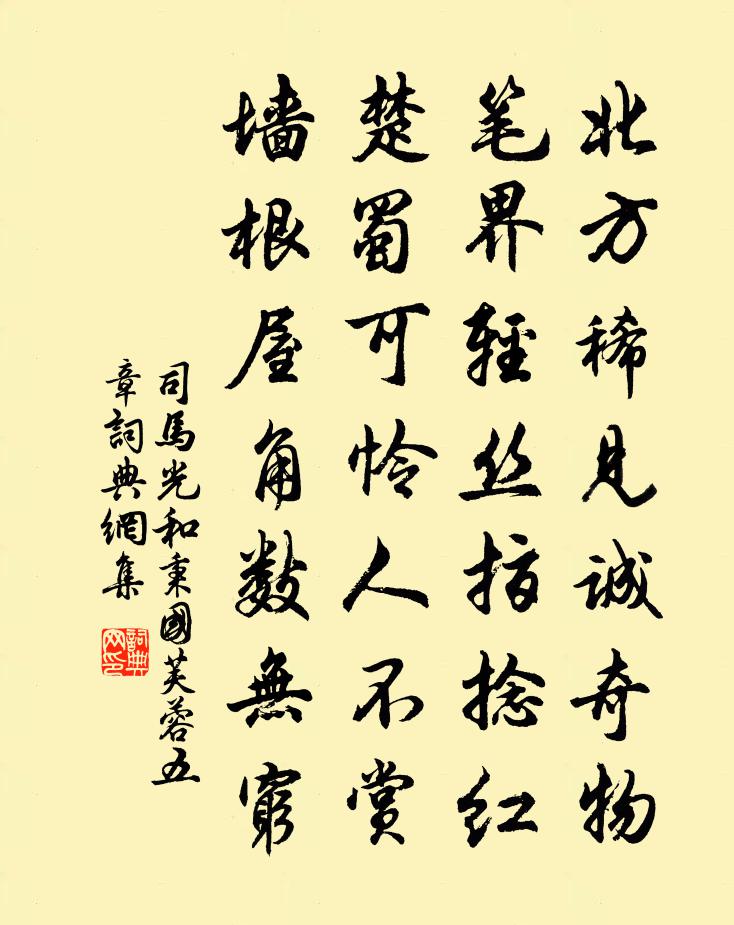 北方稀見誠奇物
笔界輕丝指捻红
楚蜀可怜人不赏
墙根屋角数無窮
司馬光和秉國芙蓉五
章詞典網集
詞典网印